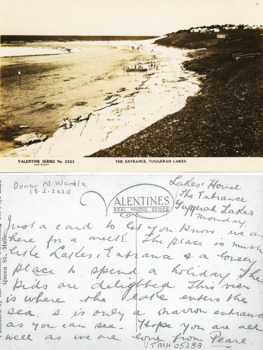 VALENTINE SERIES No. 3353
THE ENTRANCE, TUGGERAH LAKES
Donor N. Wardle
13-2-2020
VALENTINES
REAL PHOTO SERIES
Lakes House
The Entrance
Tuggerah Lakes
Monday.
Just a card to let you know we are
here for a week. The place is much
like Lakes Entrance & a lovely
place to spend a holiday. The
kids are delighted. This view
is where the lake enters the
sea, & is only a narrow entrance
as you can see. Hope you are all
well as we are love from Pearl
VTMH 05288
Queen St., Melb.